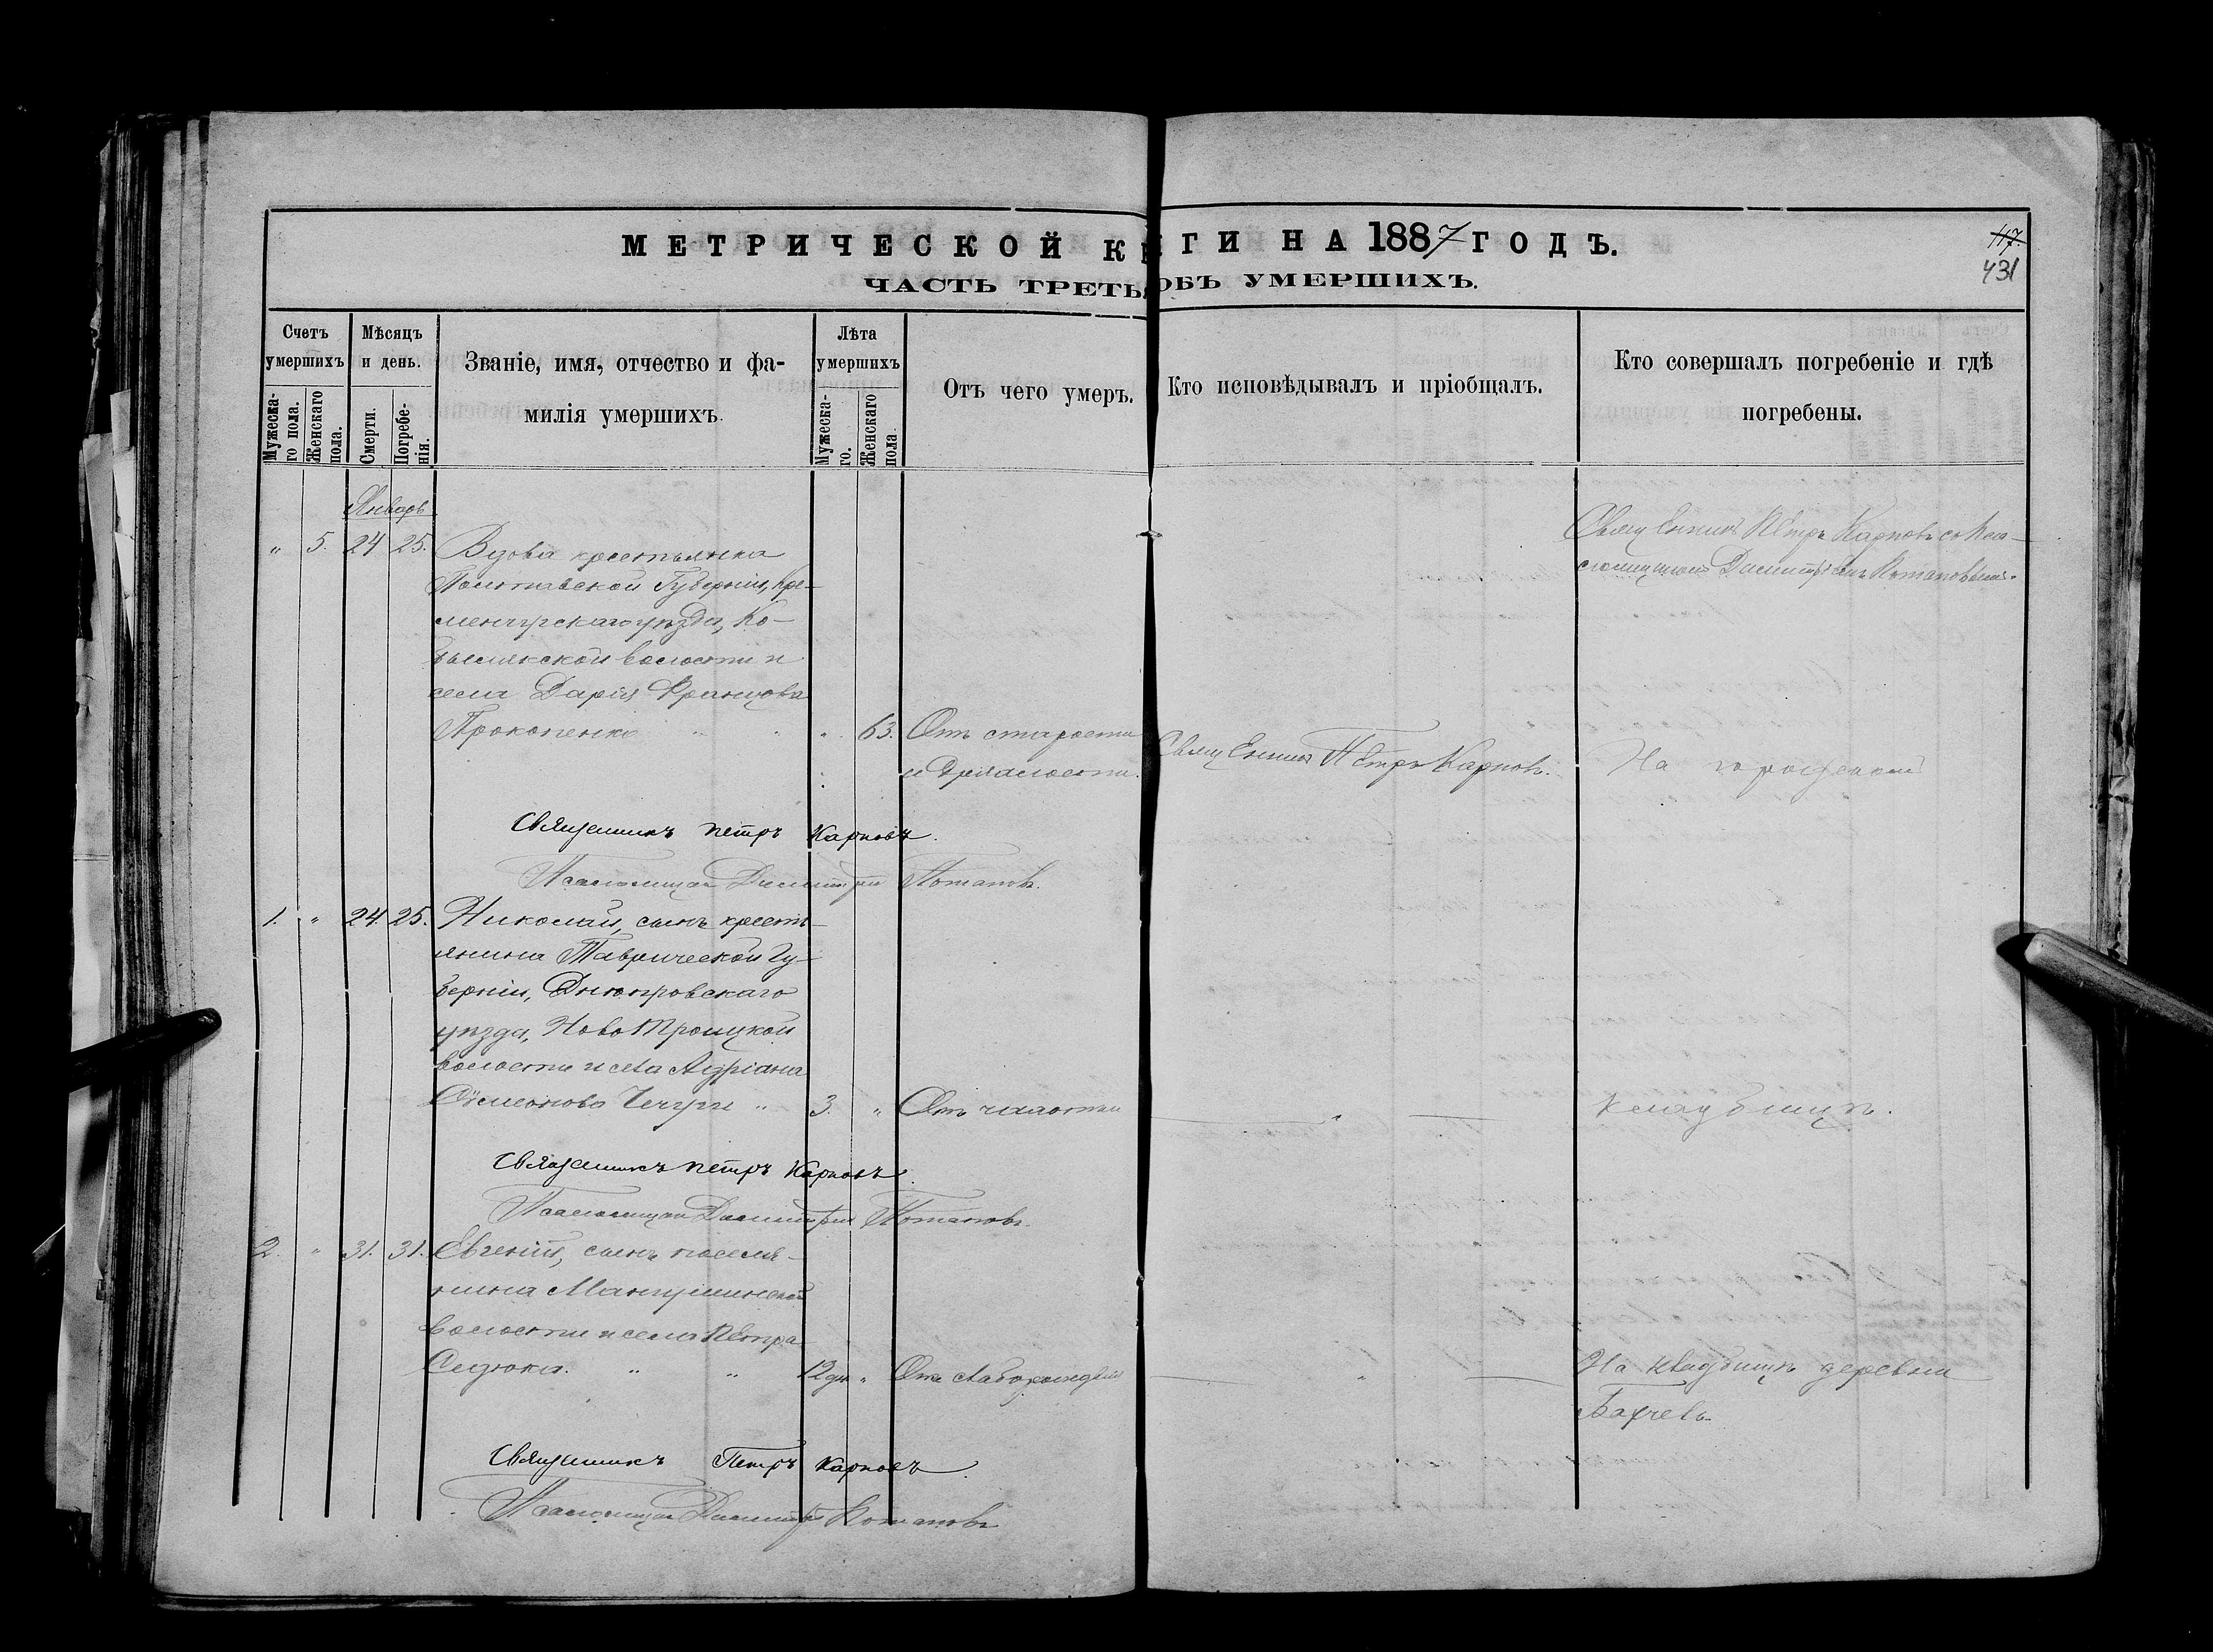 МЕТРИЧЕСКОЙ КНИГИ НА 1887 ГОДЪ.
117.
431
ЧАСТЬ ТРЕТЬЯ ОБЪ УМЕРШИХЪ.
Счетъ умершихъ
Мужеска-го пола.
Женскаго пола.
Мѣсяцъ и день.
Смерти.
Погребе-нія.
Званіе, имя, отчество и фа-
милія умершихъ.
Лѣта умершихъ
Мужеска-го.
Женскаго пола
Отъ чего умеръ.
Кто исповѣдывалъ и пріобщалъ.
Кто совершалъ погребеніе и гдѣ
погребены.
Январь
" 5. 24 25. Вдова крестьянка
Полтавской Губерніи, Кре-
менчугскаго уѣзда, Ко-
волости и
села Дарія
Прокопенко " " " 63. Отъ старости
и дряхлости.
Священникъ Петръ Карповъ.
Священникъ Петръ Карповъ со Пса-
ломщикомъ Димитріемъ Потаповымъ.
На городскомъ
Священникъ Петръ Карповъ.
Псаломщикъ Димитрій Потаповъ.
1. " 24 25. Николай, сынъ кресть-
янина Таврической Гу-
берніи, Днѣпровскаго
уѣзда, Ново Троицкой
волости и села Андріана
Симеонова " 3. " Отъ чахотки
"
кладбищѣ.
Священникъ Петръ Карповъ.
Псаломщикъ Димитрій Потаповъ.
2. " 31. 31. Евгеній, сынъ поселя-
нина Мангушинской
волости и села Петра
" " 12 дн " Отъ слаборожденія
"
На кладбищѣ деревни
Священникъ Петръ Карповъ.
Псаломщикъ Димитрій Потаповъ